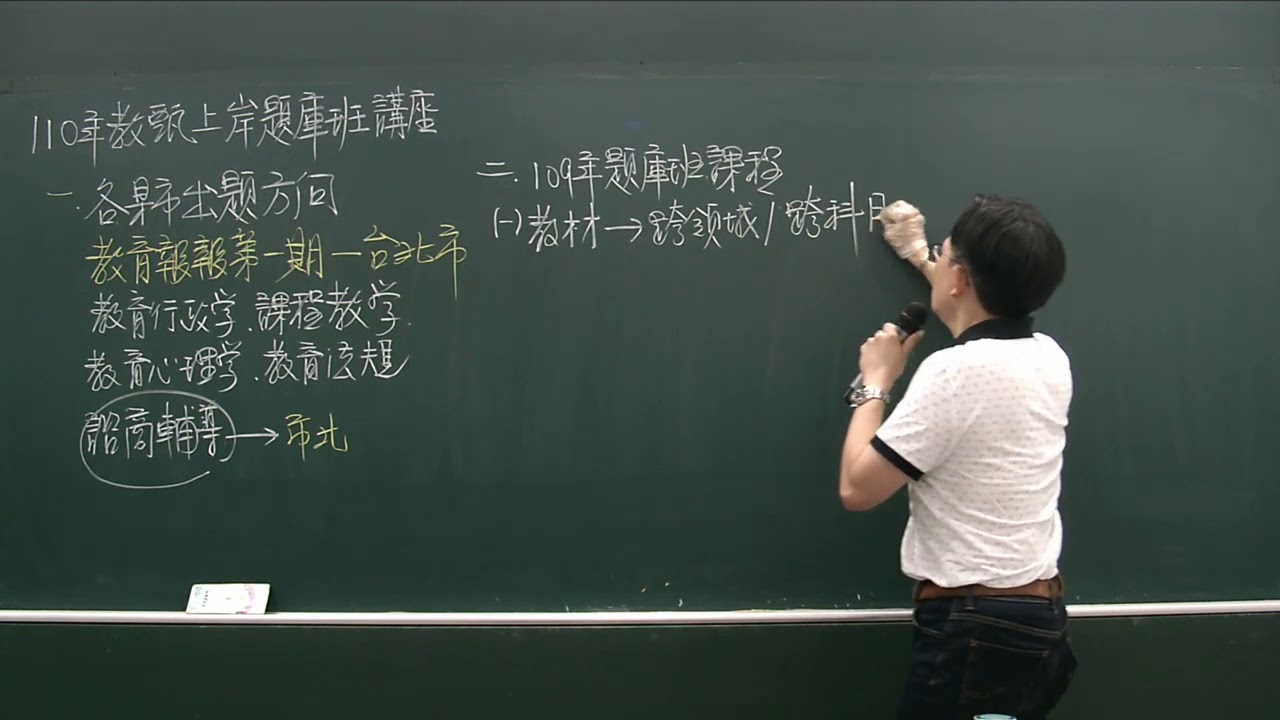 110年教甄上岸題庫班講座
一.各縣市出題方向
教育報報第一期－台北市
教育行政学、課程教学、
教育心理学、教育法規
諮商輔導→市北
二.109年題庫班課程
(一)教材→跨領域/跨科目